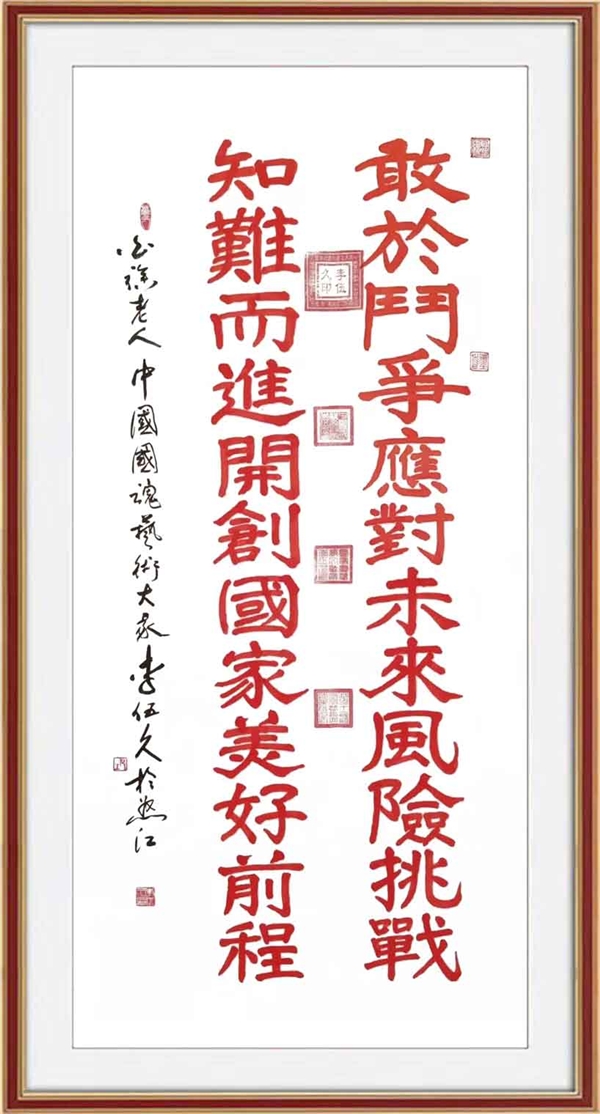 敢於鬥爭應對未來風險挑戰
知難而進開創國家美好前程
老人中國國魂藝術大家李伍久於怒江
李伍久印